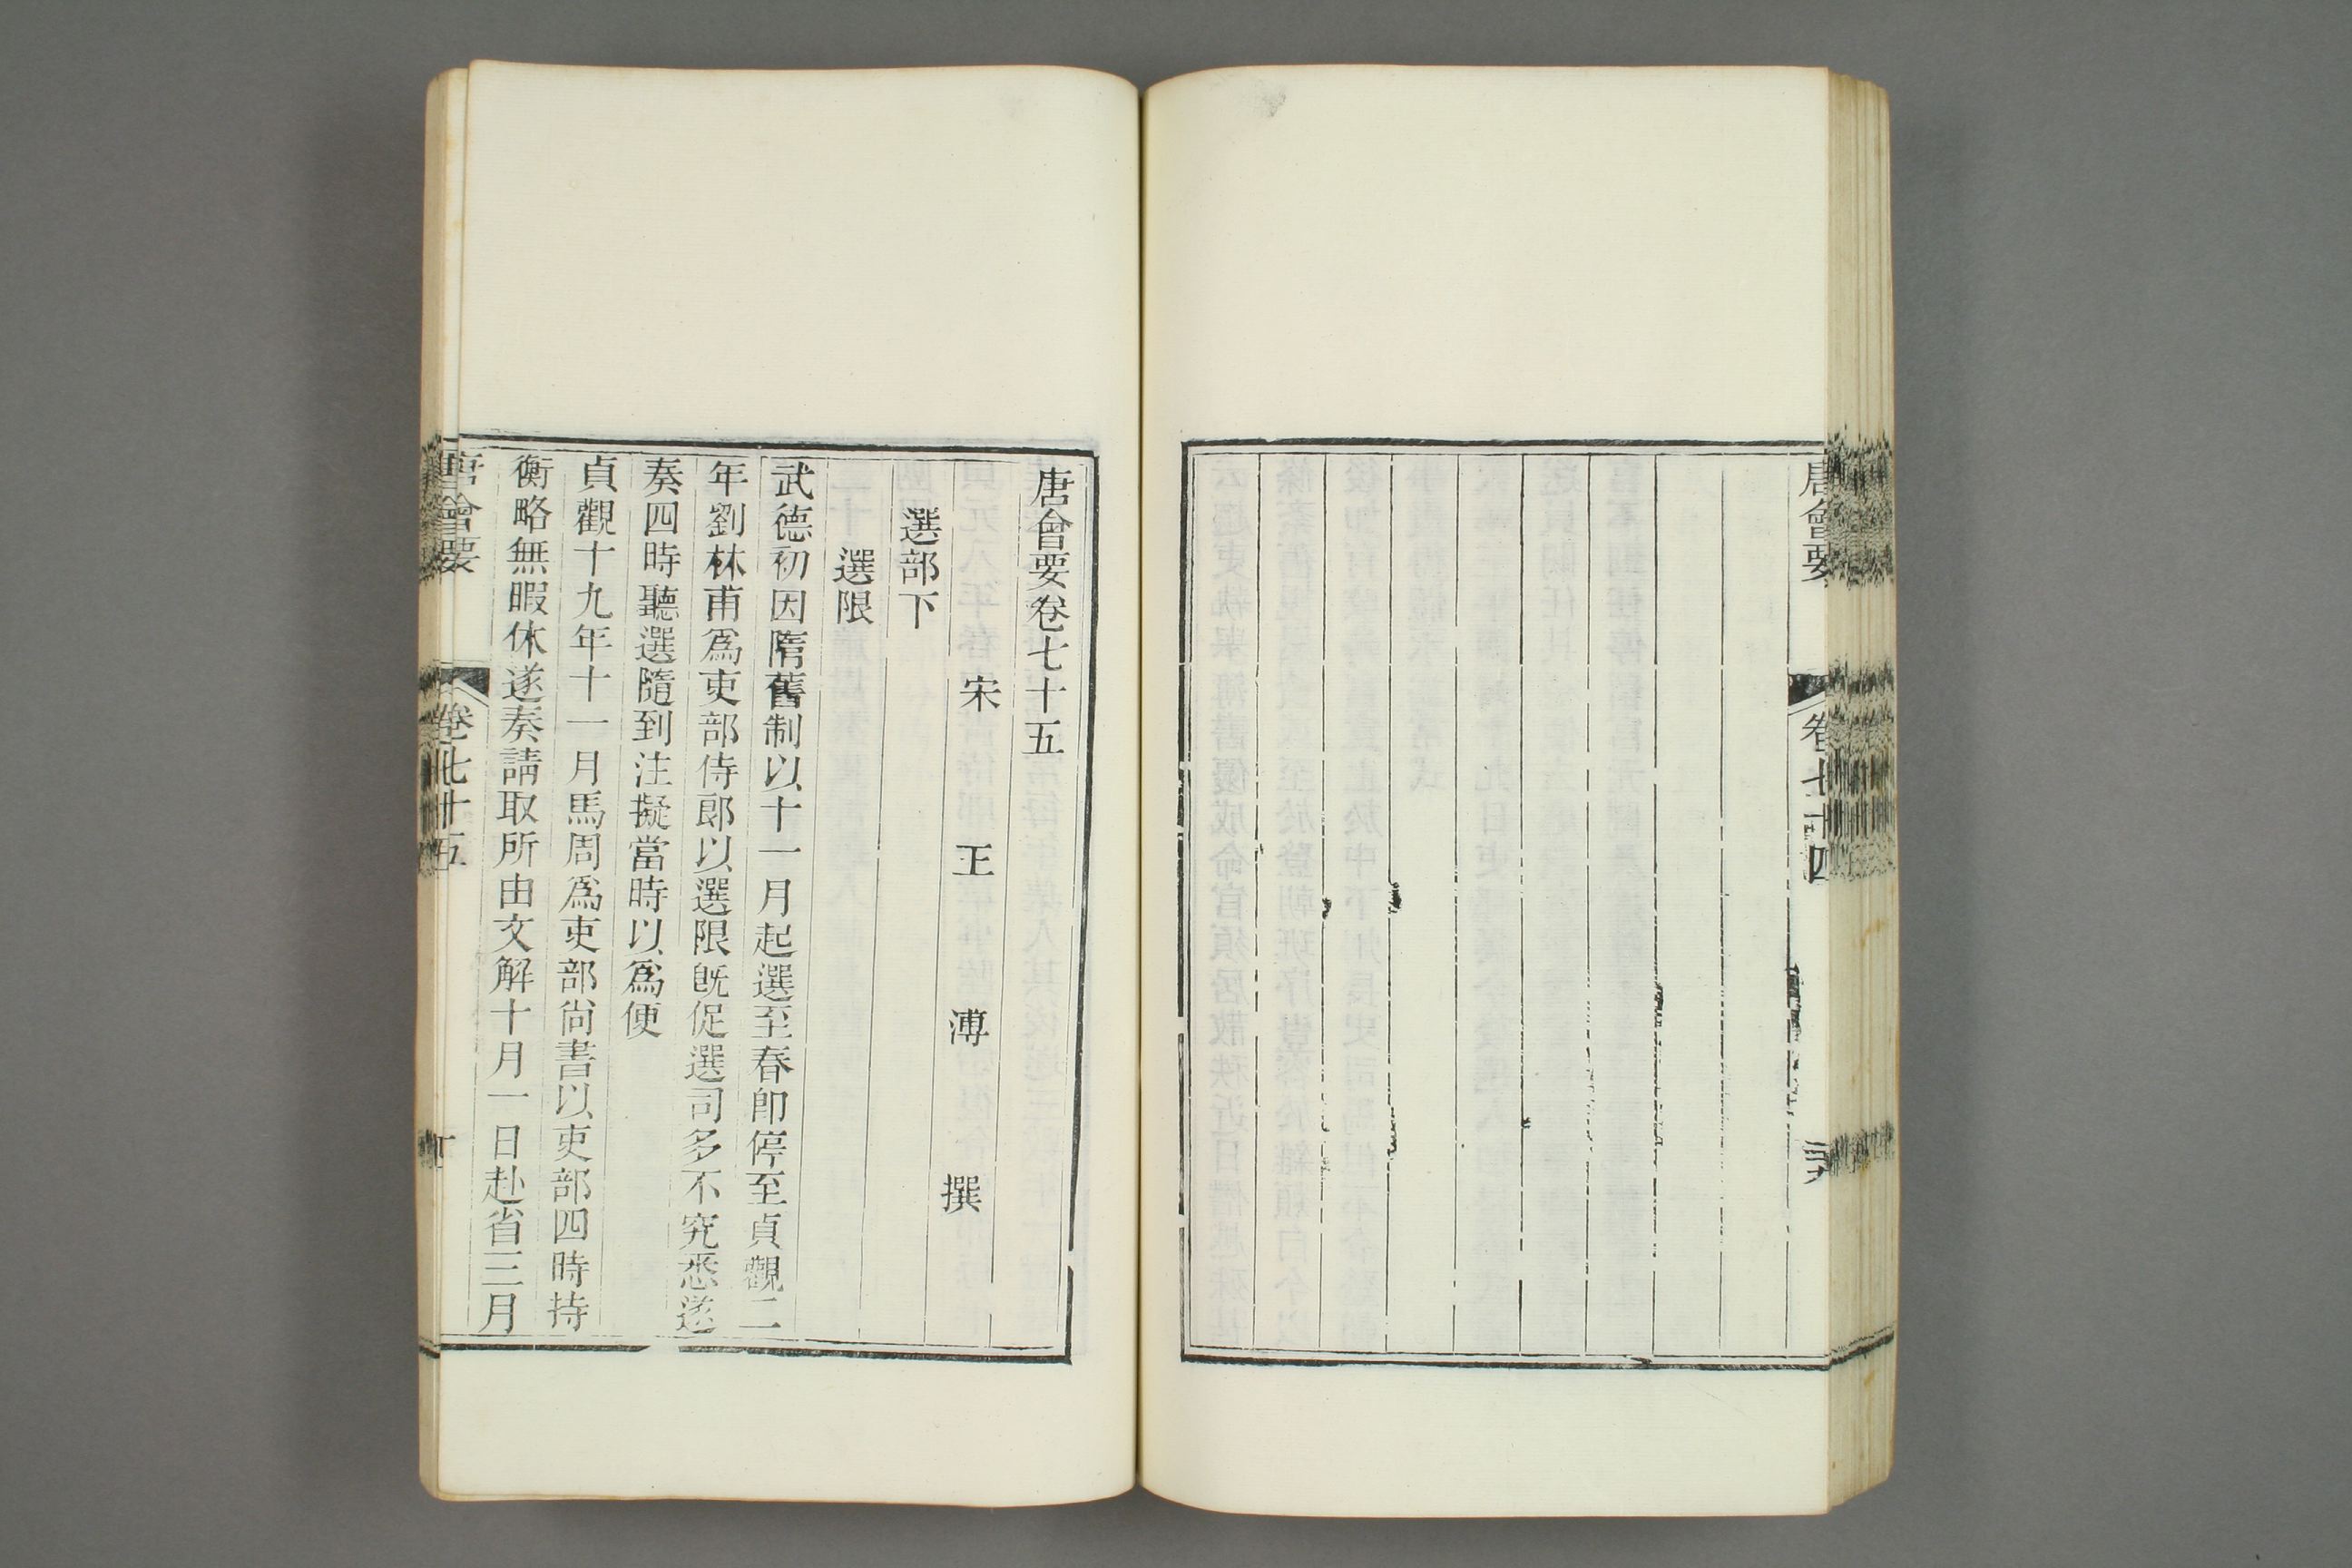 唐會要
卷七十四
唐會要卷七十五
宋 王 溥 撰
選部下
選限
武德初因隋舊制以十一月起選至春即停至貞觀二
年劉林甫爲吏部侍郎以選限既促選司多不究悉遂
奏四時聽選隨到注擬當時以爲便
貞觀十九年十一月馬周爲吏部尚書以吏部四時持
衡略無暇休遂奏請取所由文解十月一日赴省三月
唐會要
卷七十五